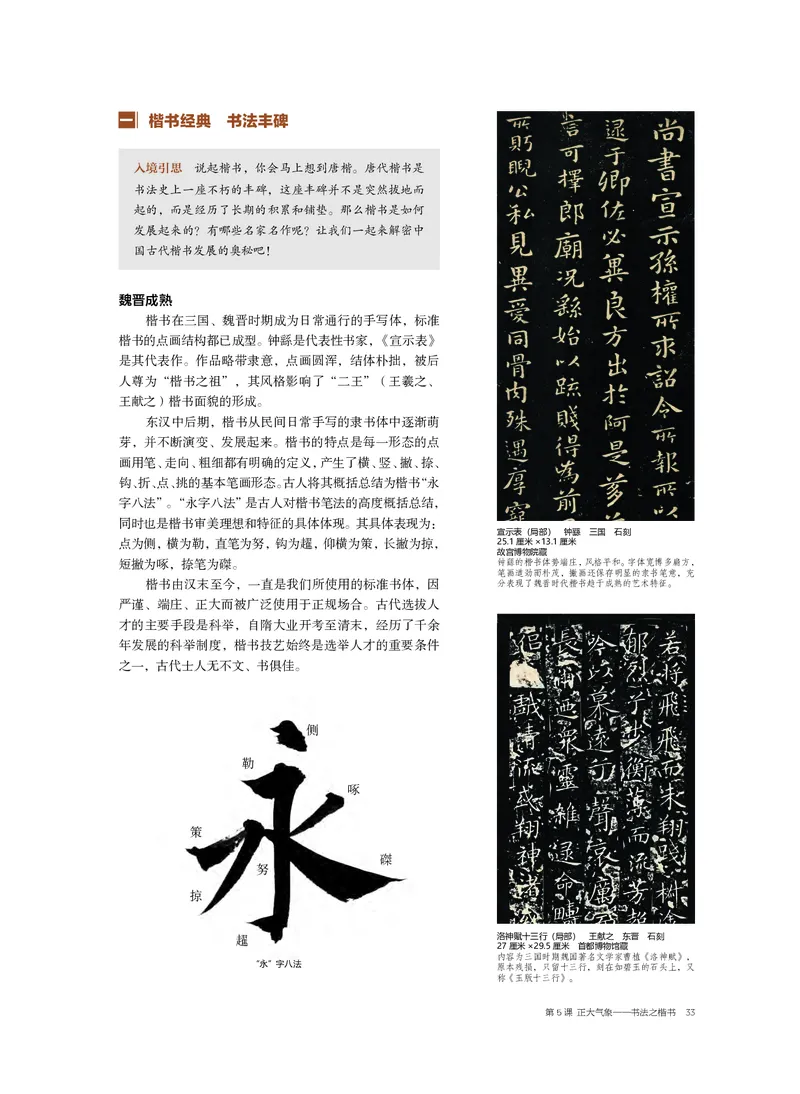 一 楷书经典 书法丰碑
入境引思 说起楷书，你会马上想到唐楷。唐代楷书是
书法史上一座不朽的丰碑，这座丰碑并不是突然拔地而
起的，而是经历了长期的积累和铺垫。那么楷书是如何
发展起来的？有哪些名家名作呢？让我们一起来解密中
国古代楷书发展的奥秘吧！
魏晋成熟
楷书在三国、魏晋时期成为日常通行的手写体，标准
楷书的点画结构都已成型。钟繇是代表性书家，《宣示表》
是其代表作。作品略带隶意，点画圆浑，结体朴拙，被后
人尊为“楷书之祖”，其风格影响了“二王”（王羲之、
王献之）楷书面貌的形成。
东汉中后期，楷书从民间日常手写的隶书体中逐渐萌
芽，并不断演变、发展起来。楷书的特点是每一形态的点
画用笔、走向、粗细都有明确的定义，产生了横、竖、撇、捺、
钩、折、点、挑的基本笔画形态。古人将其概括总结为楷书“永
字八法”。“永字八法”是古人对楷书笔法的高度概括总结，
同时也是楷书审美理想和特征的具体体现。其具体表现为：
点为侧，横为勒，直笔为努，钩为趯，仰横为策，长撇为掠，
短撇为啄，捺笔为磔。
楷书由汉末至今，一直是我们所使用的标准书体，因
严谨、端庄、正大而被广泛使用于正规场合。古代选拔人
才的主要手段是科举，自隋大业开考至清末，经历了千余
年发展的科举制度，楷书技艺始终是选举人才的重要条件
之一，古代士人无不文、书俱佳。
侧
勒
啄
策
永
努
磔
掠
趯
“永”字八法
尚書宣示孫權所求詔令所報所以
逮于卿佐必異良方出於阿是芻
言可擇郎廟況繇始以疏賤得為前
所眄睨公私見異愛同骨肉殊遇厚寵
宣示表（局部） 钟繇 三国 石刻
25.1 厘米 ×13.1 厘米
故宫博物院藏
钟繇的楷书体势端庄，风格平和。字体宽博多扁方，
笔画遒劲而朴茂，撇画还保存明显的隶书笔意，充
分表现了魏晋时代楷书趋于成熟的艺术特征。
若将飛飛而未翔踐椒塗
郁烈步衡薄而流芳超
吟以慕遠聲哀厲
長爾迺眾靈雜遝命疇
侶戲清流或翔神渚
洛神赋十三行（局部） 王献之 东晋 石刻
27 厘米 ×29.5 厘米 首都博物馆藏
内容为三国时期魏国著名文学家曹植《洛神赋》，
原本残损，只留十三行，刻在如碧玉的石头上，又
称《玉版十三行》。
第 5 课 正大气象——书法之楷书 33